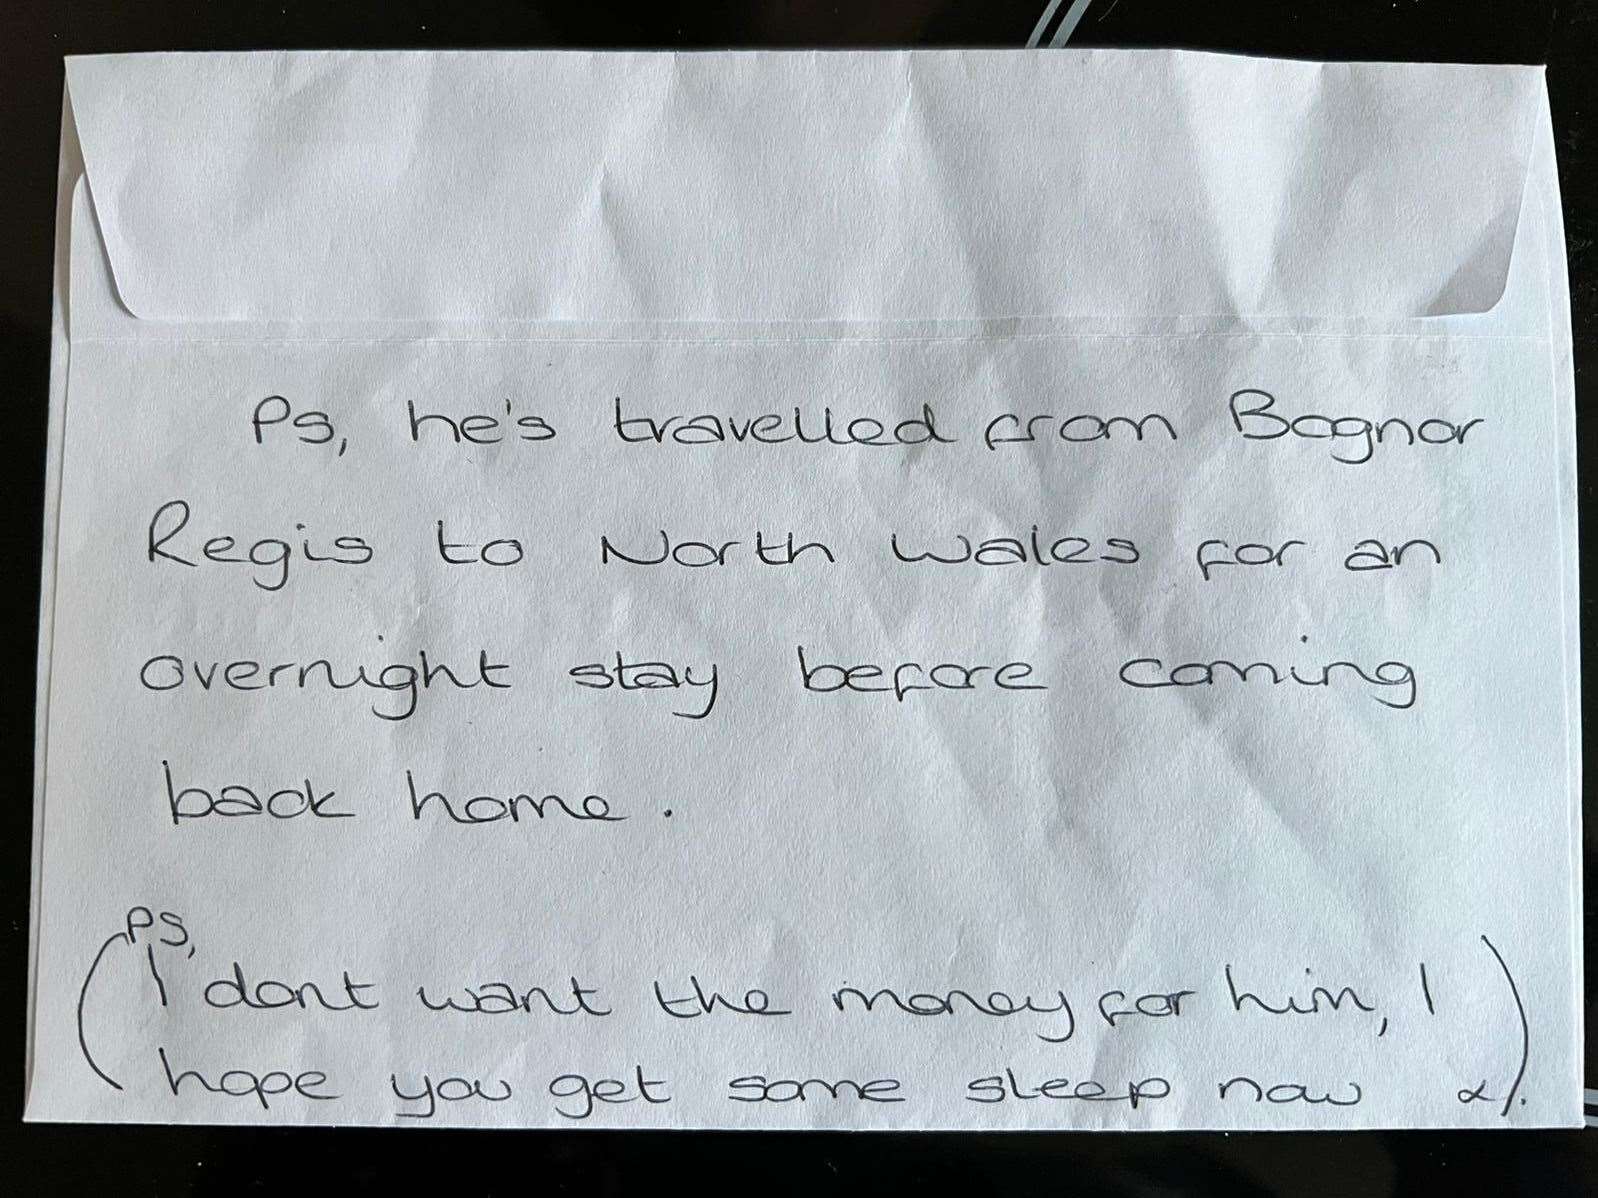 Ps, he's travelled from Bognor
Regis to North Wales for an
overnight stay before coming
back home.
PS,
I dont want the money for him, I
hope you get some sleep now x